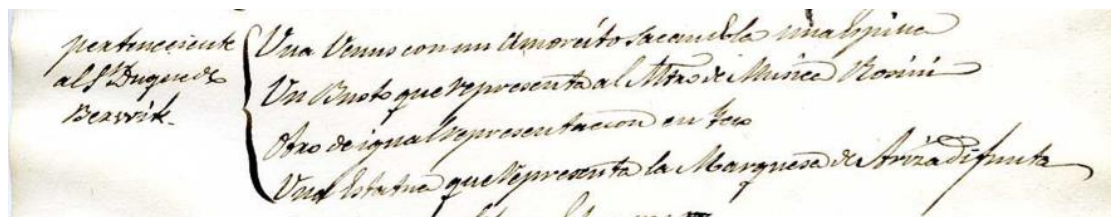 perteneciente
al Sr. Duque de
Berwik.
Una Venus con un Amorcito sacandole una espina
Un Busto que representa al Mtro de Musica Rosini
Otro de igual representacion en Yeso
Una Estatua que representa la Marquesa de Ariza difunta